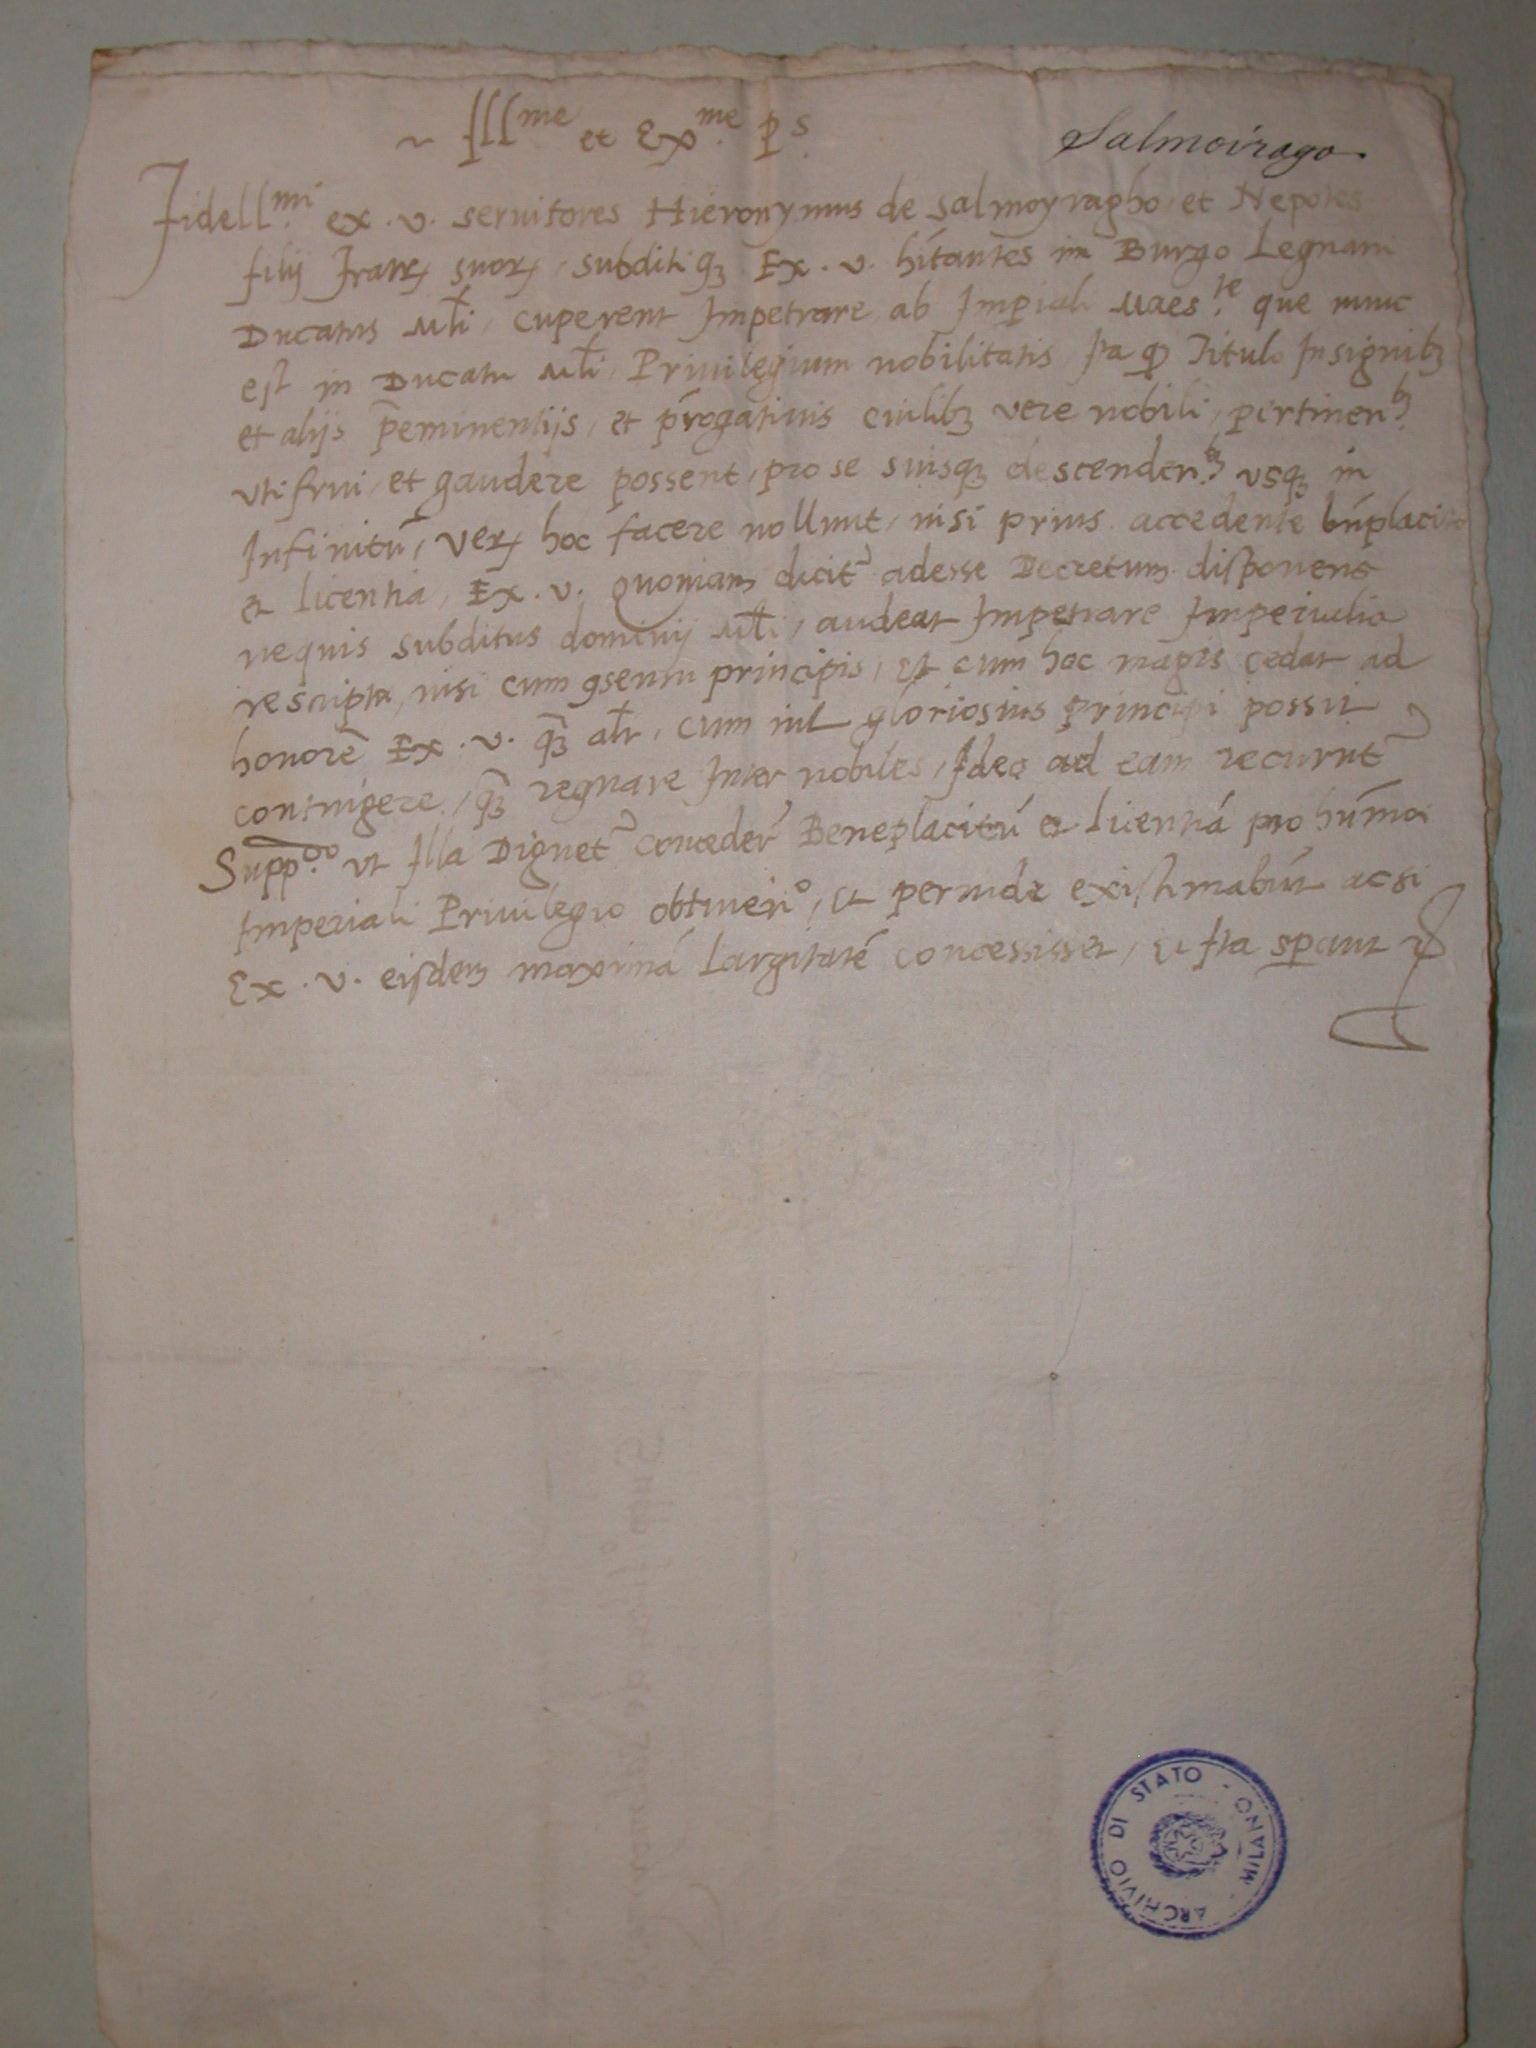 ~ Ill.me et Ex.me p. s.
Salmoirago
Fidell.mi ex . v. seruitores Hieronymus de salmoyragho et Nepotes
filij fratrꝝ suorꝝ, subditi qꝫ Ex . v. hītantes in Burgo Legnani
Ducatus Młi, cuperent Impetrare ab Imꝑiali Maes.te que nunc
est in Ducatu Młi, Priuilegium nobilitatis, Ita ꝙ Titulo Insignibꝫ
et alijs p̄eminentijs, et p̄rogatiuis cuilibꝫ vere nobili, pertinen.bꝫ
vti frui, et gaudere possent, pro se suisqꝫ descenden.bꝫ vsqꝫ in
Infinitū, Verꝝ hoc facere nollunt, nisi prius accedente bn̄placito
et licentia, Ex . v. Quoniam dicit᷑ adesse Decretum disponens
nequis subditus dominij Młi, audeat Impetrare Imperialia
rescripta, nisi cum ꝯsensu principis, et cum hoc magis cedat ad
honorē Ex . v. qꝫ̄ alr̄, cum nil gloriosius principi possit
contingere, qꝫ̄ regnare Inter nobiles, Ideo ad eam recurrūt᷑
Supp.do vt Illa Dignet᷑ conceder᷑ Beneplacitū et licentiā pro hūmōi
Imperiali Priuilegio obtinen.o, et perinde existimabūt acsi
Ex . v. eisdem maximā largitatē concessisset, et Ita sꝑant
ARCHIVIO DI STATO - MILANO